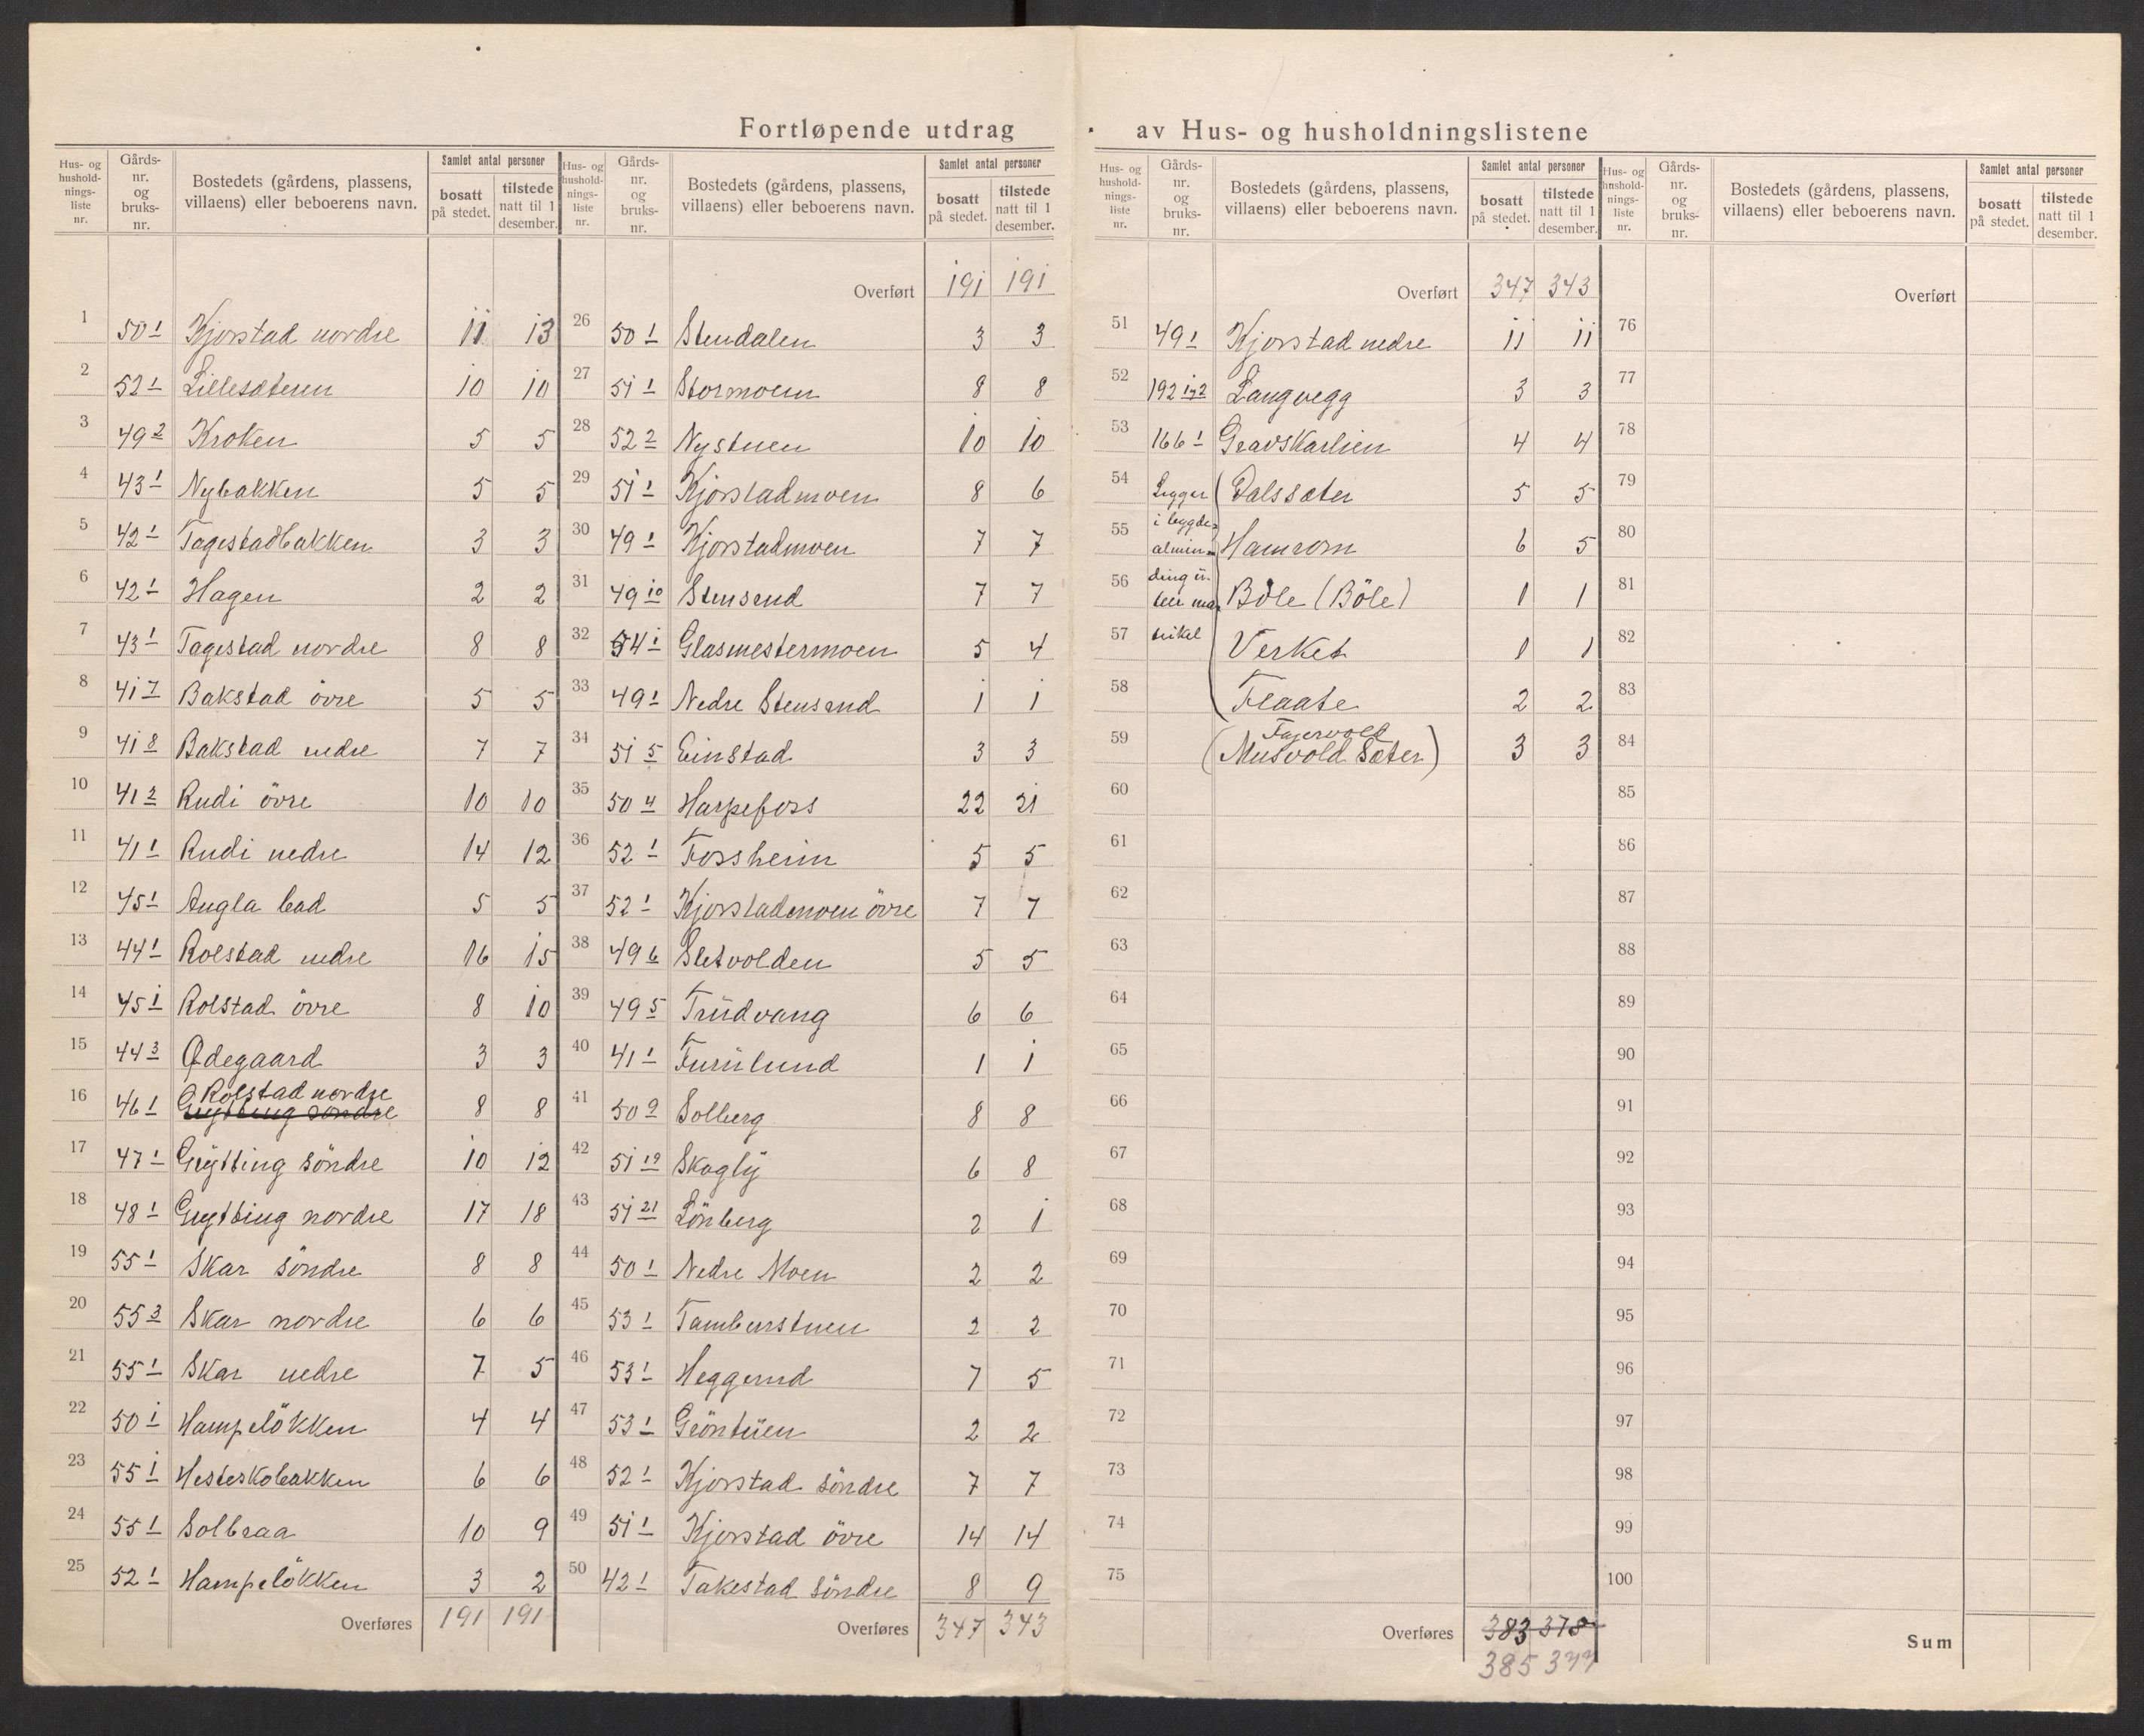 Fortløpende utdrag av Hus- og husholdningslistene
Hus- og husholdningsliste nr. | Gårds-nr. og bruks-nr. | Bostedets (gårdens, plassens, villaens) eller beboerens navn. | Samlet antal personer | bosatt på stedet. | tilstede natt til 1 desember.
1 50 1 Kjorstad nordre 11 13
2 52 1 Lillesæteren 10 10
3 49 2 Kroken 5 5
4 43 1 Nybakken 5 5
5 42 1 Tagestadbakken 3 3
6 42 1 Hagen 2 2
7 43 1 Tagestad nordre 8 8
8 41 7 Bakstad övre 5 5
9 41 8 Bakstad nedre 7 7
10 41 2 Rudi övre 10 10
11 41 1 Rudi nedre 14 12
12 45 1 Augla bad 5 5
13 44 1 Rolstad nedre 16 15
14 45 1 Rolstad övre 8 10
15 44 3 Ødegaard 3 3
16 46 1 Rolstad nordre 8 8
Grytting söndre
17 47 1 Grytting söndre 10 12
18 48 1 Grytting nordre 17 18
19 55 1 Skar söndre 8 8
20 55 3 Skar nordre 6 6
21 55 1 Skar nedre 7 5
22 50 1 Hampelökken 4 4
23 55 1 Hesteskobakken 6 6
24 55 1 Solbraa 10 9
25 52 1 Hampelökken 3 2
Overføres 191 191
Hus- og husholdningsliste nr. | Gårds-nr. og bruks-nr. | Bostedets (gårdens, plassens, villaens) eller beboerens navn. | Samlet antal personer | bosatt på stedet. | tilstede natt til 1 desember.
Overført 191 191
26 50 1 Stendalen 3 3
27 51 1 Stormoen 8 8
28 52 2 Nystuen 10 10
29 51 1 Kjorstadmoen 8 6
30 49 1 Kjorstadmoen 7 7
31 49 10 Stensrud 7 7
32 54 1 Glasmestermoen 5 4
33 49 1 Nedre Stensrud 1 1
34 51 5 Einstad 3 3
35 50 4 Harpefoss 22 21
36 52 1 Fossheim 5 5
37 52 1 Kjorstadmoen övre 7 7
38 49 6 Sletvolden 5 5
39 49 5 Trudvang 6 6
40 41 1 Furulund 1 1
41 50 9 Solberg 8 8
42 51 19 Skogly 6 8
43 51 21 Lönberg 2 1
44 50 1 Nedre Moen 2 2
45 53 1 Tamburstuen 2 2
46 53 1 Heggerud 7 5
47 53 1 Gröntuen 2 2
48 52 1 Kjorstad söndre 7 7
49 51 1 Kjorstad övre 14 14
50 42 1 Takestad söndre 8 9
Overføres 347 343
Hus- og husholdningsliste nr. | Gårds-nr. og bruks-nr. | Bostedets (gårdens, plassens, villaens) eller beboerens navn. | Samlet antal personer | bosatt på stedet. | tilstede natt til 1 desember.
Overført 347 343
51 49 1 Kjorstad nedre 11 11
52 192 1,2 Langvegg 3 3
53 166 1 Gravskarlien 4 4
54 Ligger Dalssæter 5 5
i bygde-
55 almin- Hamrom 6 5
ding u-
56 ten ma- Bole (Böle) 1 1
57 trikel Verket 1 1
58 Flaate 2 2
Fagervold
59 (Musvold Sæter) 3 3
60
61
62
63
64
65
66
67
68
69
70
71
72
73
74
75
Overføres 383 378
385 377
Hus- og husholdningsliste nr. | Gårds-nr. og bruks-nr. | Bostedets (gårdens, plassens, villaens) eller beboerens navn. | Samlet antal personer | bosatt på stedet. | tilstede natt til 1 desember.
Overført
76
77
78
79
80
81
82
83
84
85
86
87
88
89
90
91
92
93
94
95
96
97
98
99
100
Sum